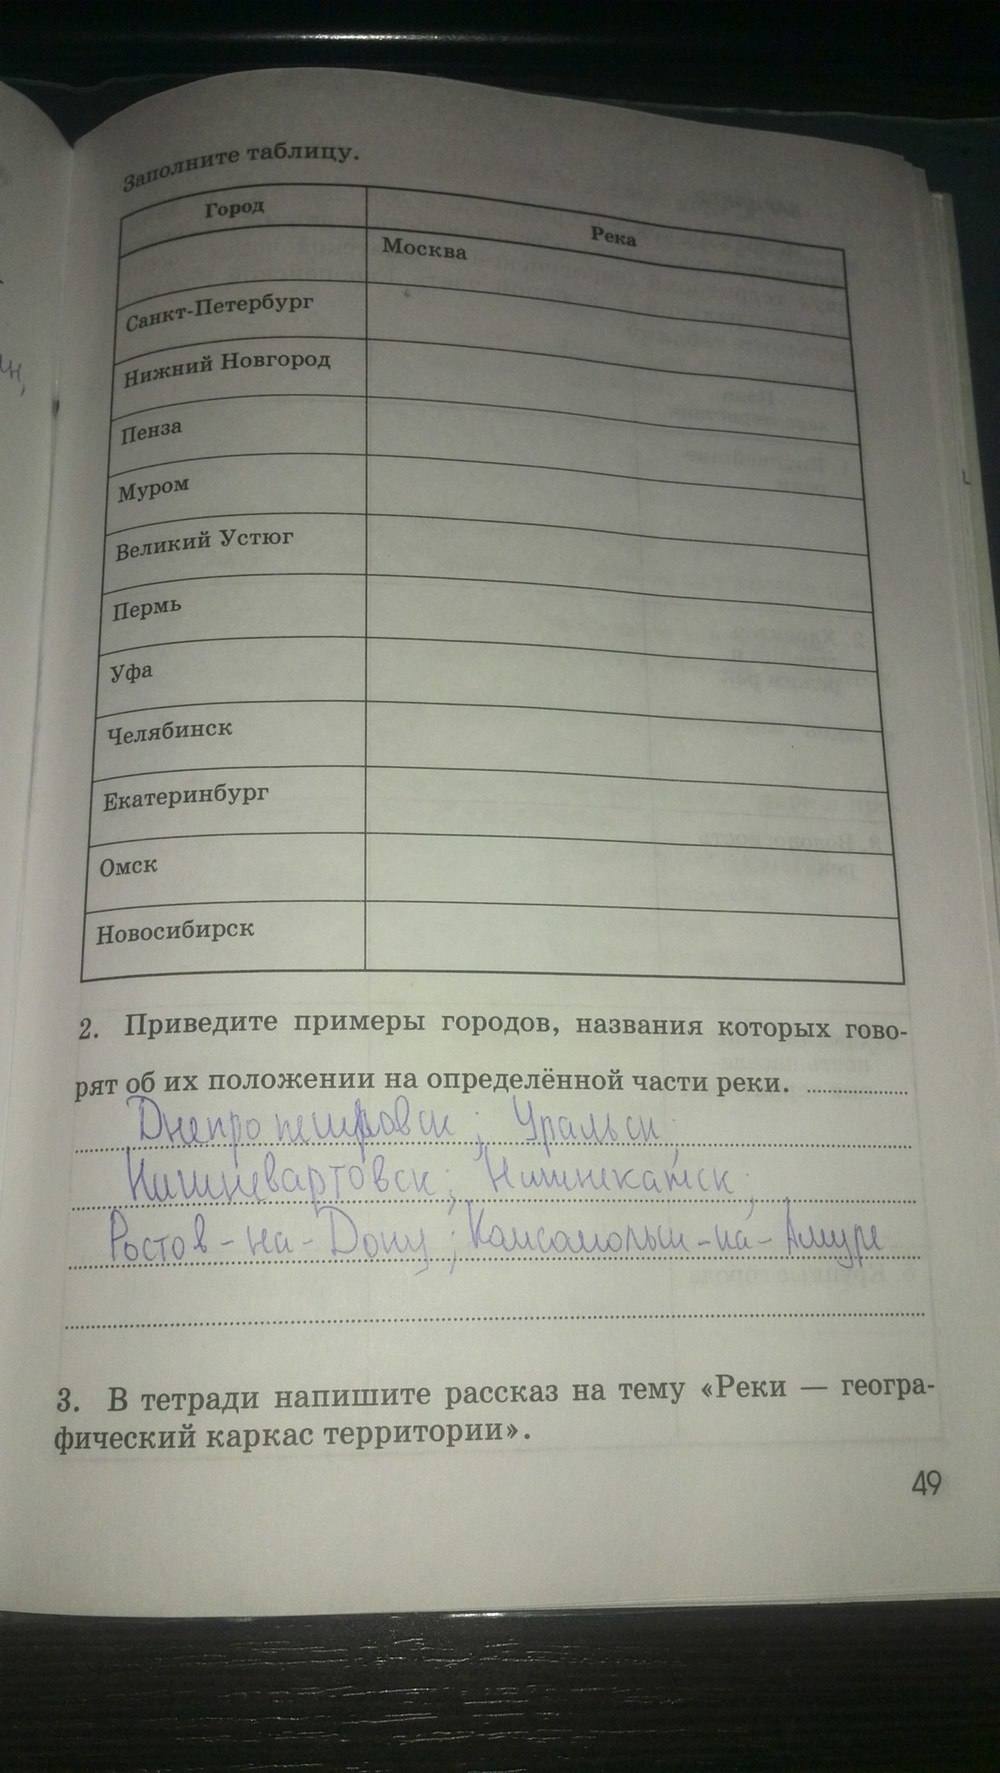 Заполните таблицу.
Город
Река
Москва
Санкт-Петербург
Нижний Новгород
Пенза
Муром
Великий Устюг
Пермь
Уфа
Челябинск
Екатеринбург
Омск
Новосибирск
2. Приведите примеры городов, названия которых гово-
рят об их положении на определённой части реки.
Днепропетровск; Уральск;
Нижневартовск; Нижнекамск;
Ростов-на-Дону; Комсомольск-на-Амуре
3. В тетради напишите рассказ на тему «Реки — геогра-
фический каркас территории».
49